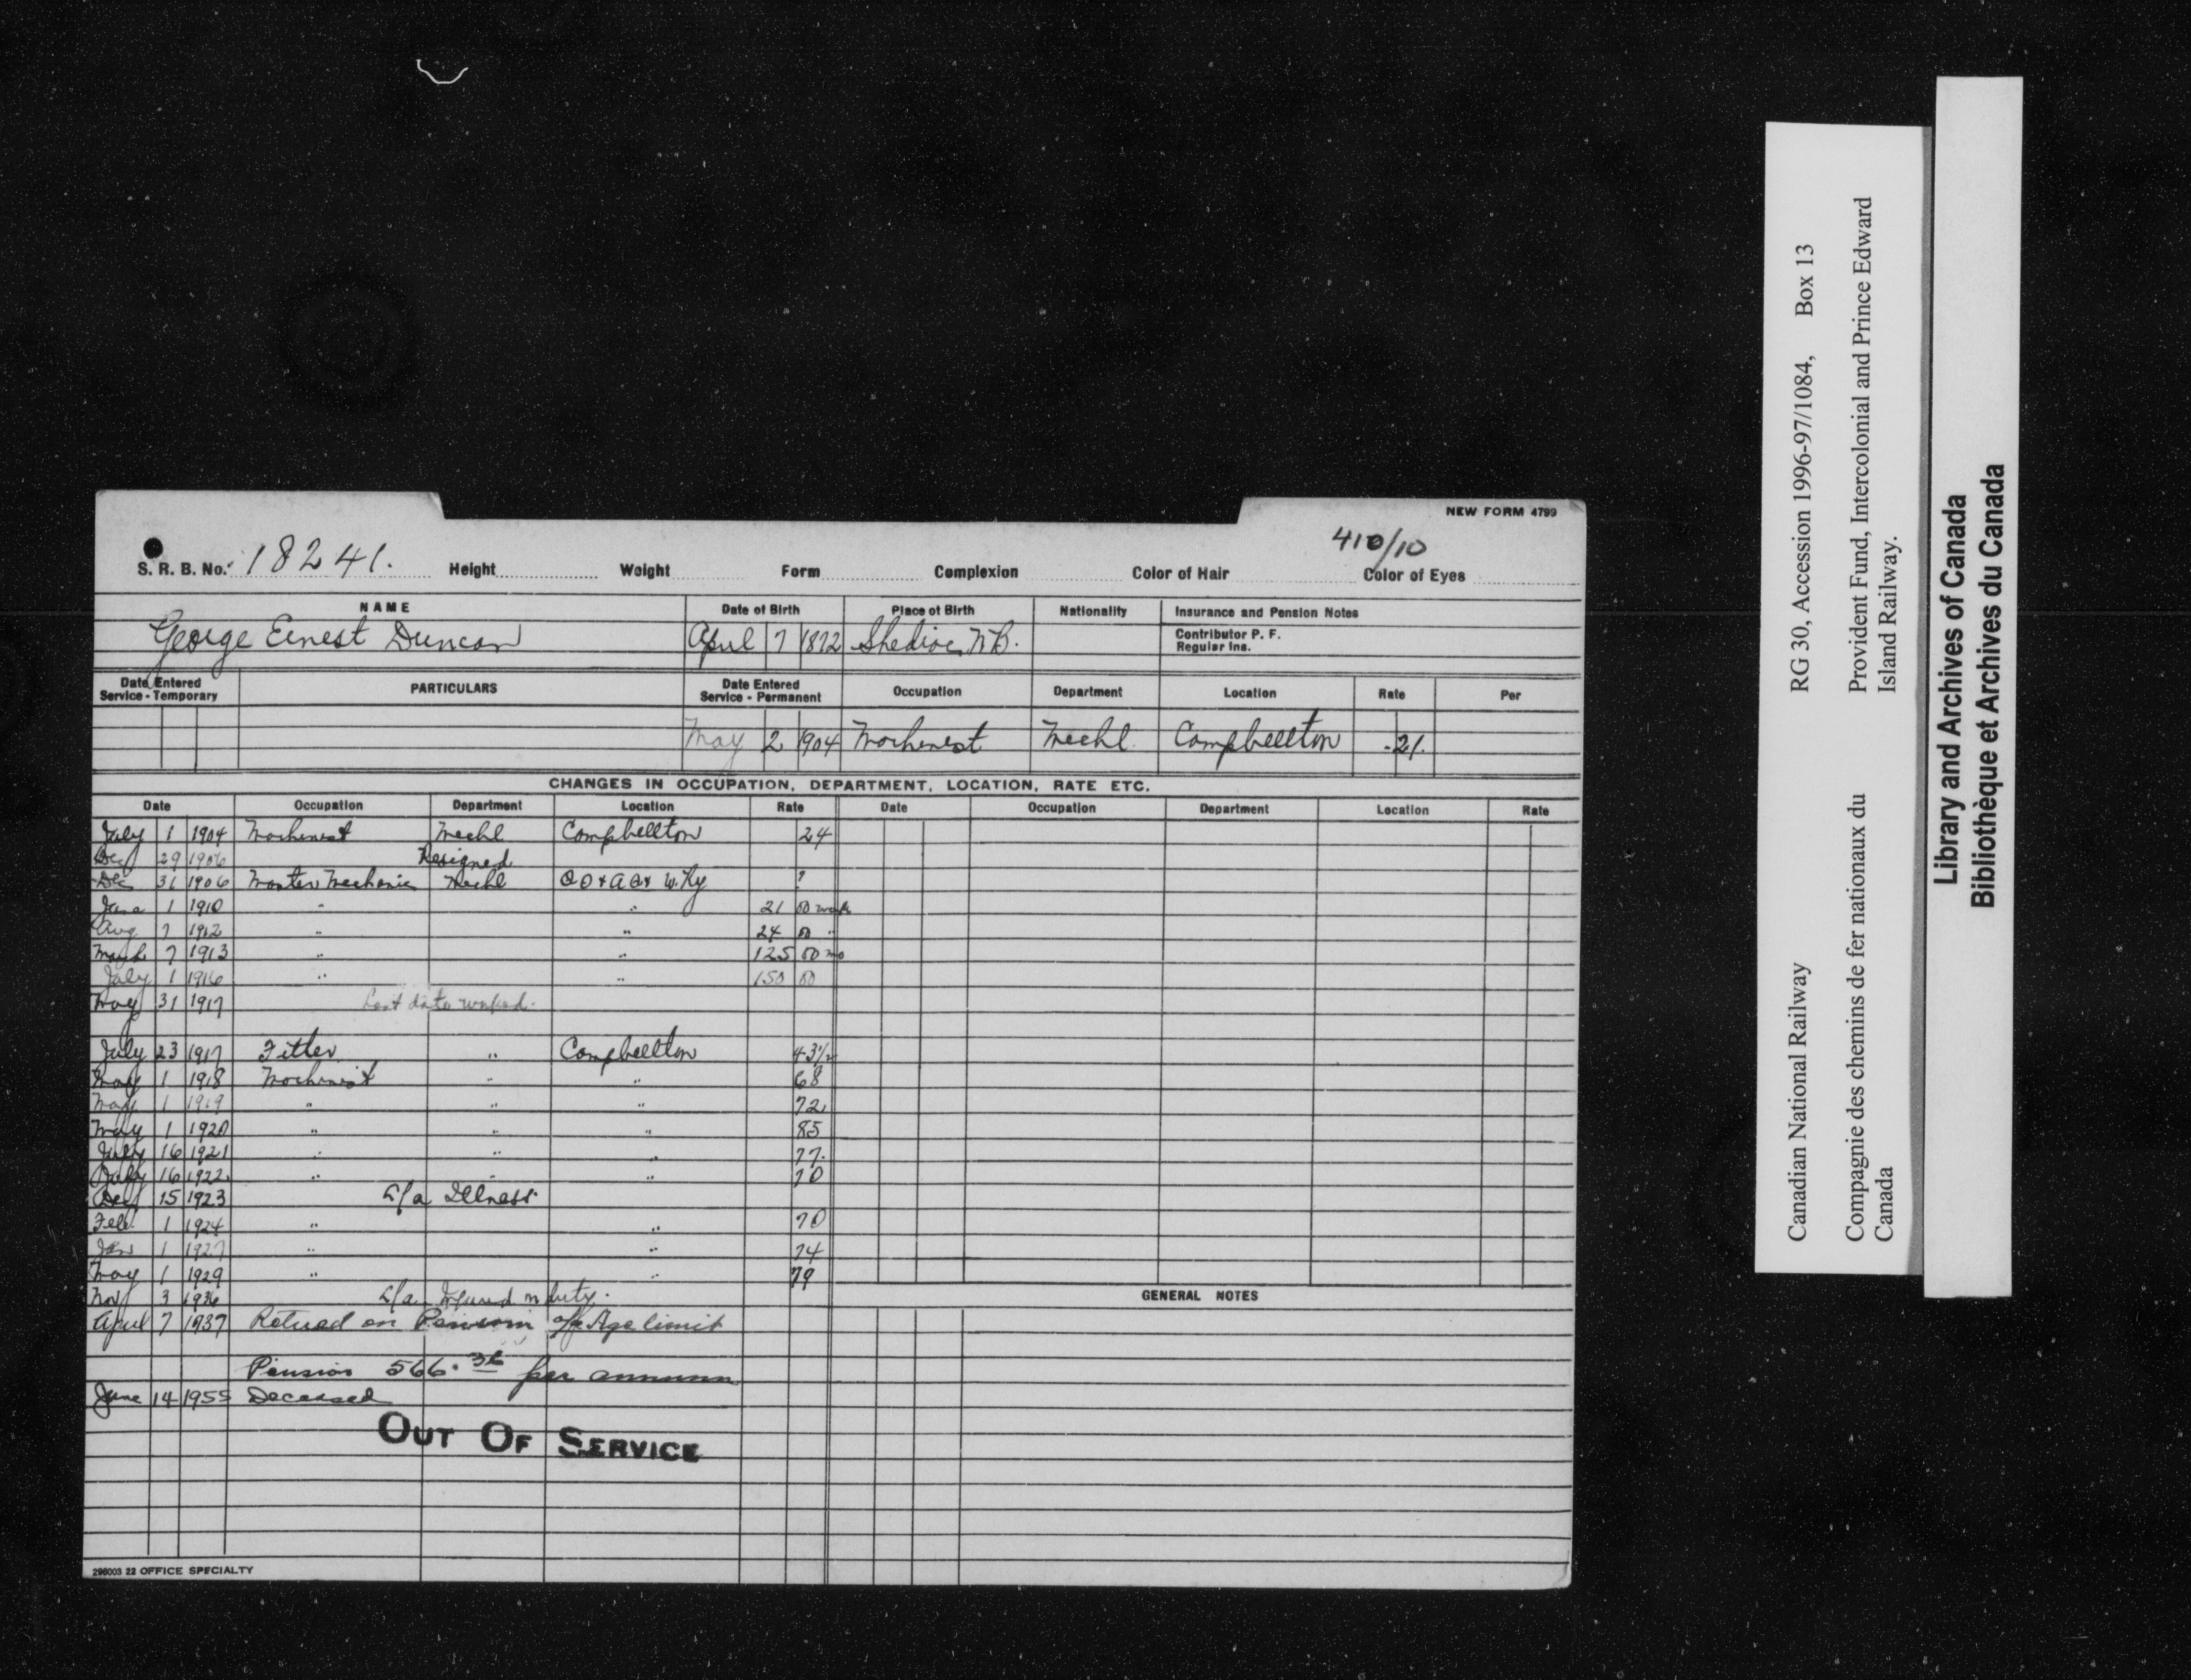 NEW FORM 4799
410/10
S. R. B. No. 18241. Height Weight Form Complexion Color of Hair Color of Eyes
NAME Date of Birth Place of Birth Nationality Insurance and Pension Notes
George Ernest Duncan April 7 1872 Shediac N.B. Contributor P. F.
Regular Ins.
Date Entered Service - Temporary PARTICULARS Date Entered Service - Permanent Occupation Department Location Rate Per
May 2 1904 Machinist Mechl. Campbellton .21.
CHANGES IN OCCUPATION, DEPARTMENT, LOCATION, RATE ETC.
Date Occupation Department Location Rate Date Occupation Department Location Rate
July 1 1904 Machinist Mechl Campbellton 24
Dec 29 1906 Resigned
Dec 31 1906 Master Mechanic Mechl W. Ry ?
June 1 1910 " " 21 00 week
Aug 7 1912 " " 24 00 "
March 7 1913 " " 125 00 mo
July 1 1916 " " 150 00
May 31 1917 Last date worked.
July 23 1917 Fitter " Campbellton 43½
May 1 1918 Machinist " " 68
May 1 1919 " " " 72
May 1 1920 " " " 85
July 16 1921 " " " 77.
July 16 1922 " " " 70
Dec 15 1923 L/a Illness.
Feb. 1 1924 " " 70
Jan 1 1927 " " 74
May 1 1929 " " 79
Nov 3 1936 L/a Injured on duty.
GENERAL NOTES
April 7 1937 Retired on Pension a/c Age limit
Pension 566.36 per annum
June 14 1955 Deceased
OUT OF SERVICE
296003 22 OFFICE SPECIALTY
Canadian National Railway RG 30, Accession 1996-97/1084, Box 13
Compagnie des chemins de fer nationaux du Canada
Provident Fund, Intercolonial and Prince Edward Island Railway.
Library and Archives of Canada
Bibliothèque et Archives du Canada